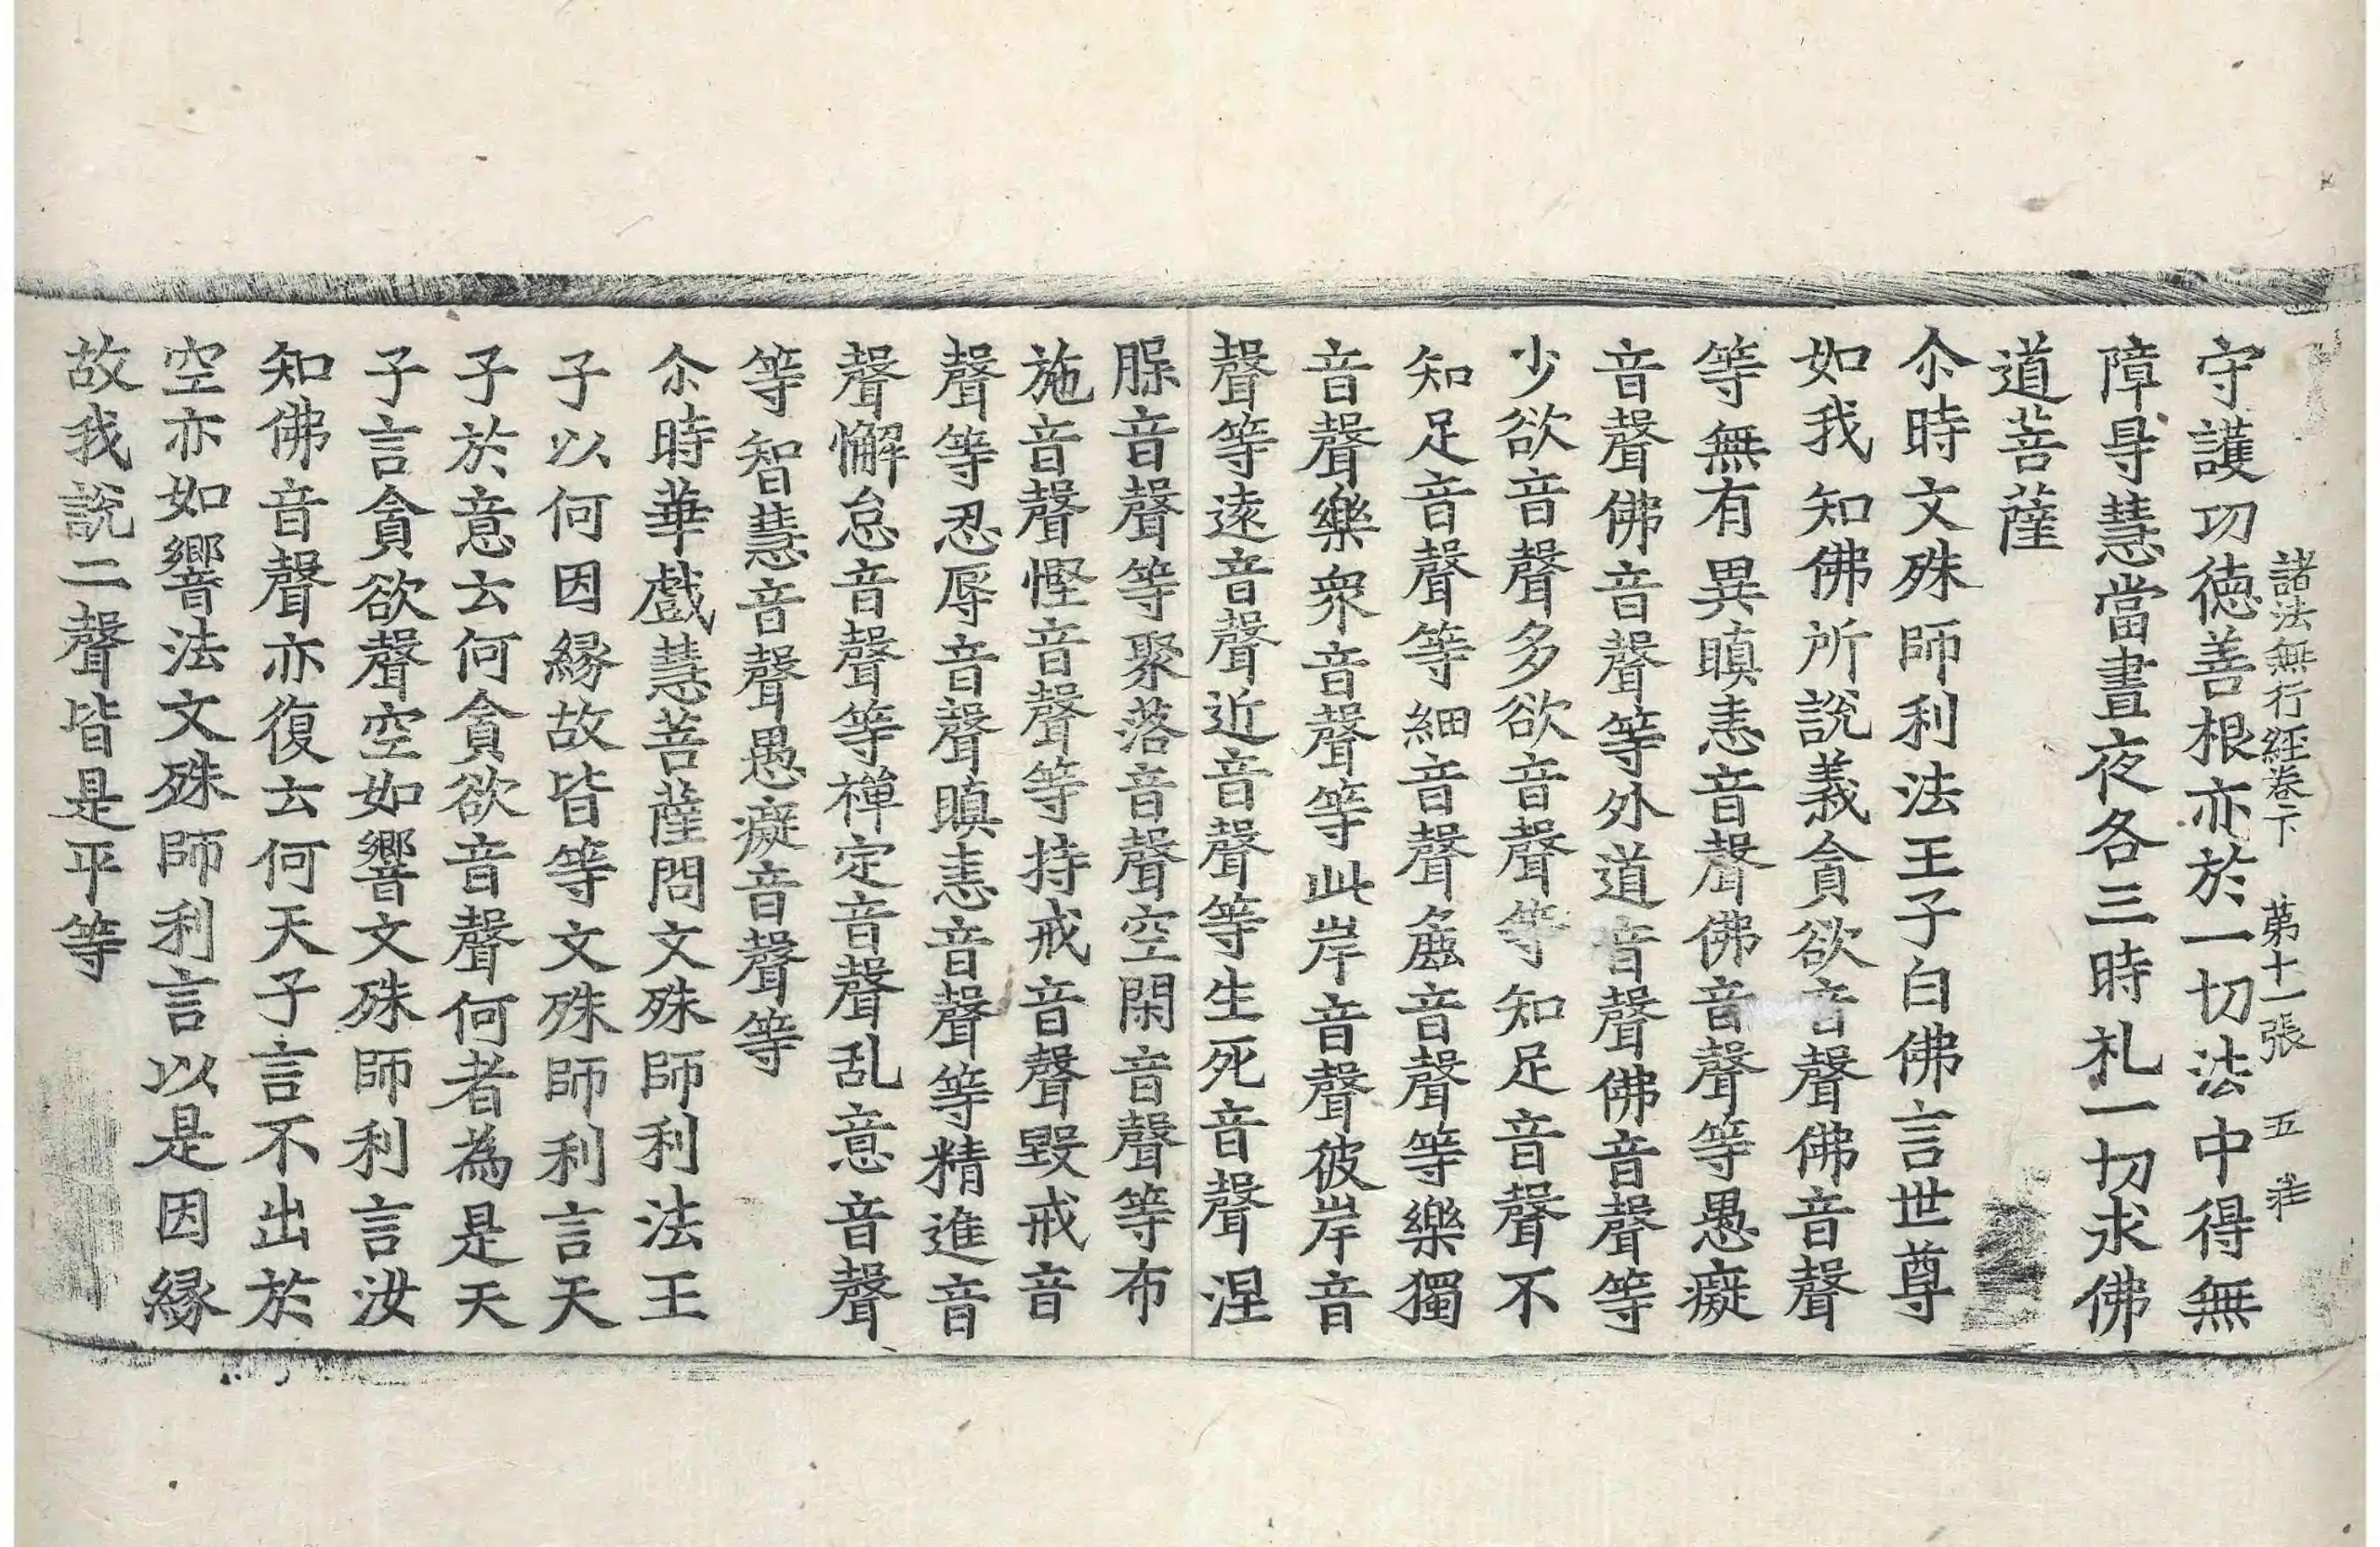 諸法無行經卷下　苐十一張　五
守護㓛德善根亦於一切法中得無
障㝵慧當晝夜各三時礼一切求佛
道菩薩
尒時文殊師利法王子白佛言世尊
如我知佛所說義貪欲音聲佛音聲
等無有異瞋恚音聲佛音聲等愚癡
音聲佛音聲等外道音聲佛音聲等
少欲音聲多欲音聲等知足音聲不
知足音聲等細音聲麁音聲等樂獨
音聲樂衆音聲等此岸音聲彼岸音
聲等遠音聲近音聲等生死音聲涅
音聲等聚落音聲空閑音聲等布
施音聲慳音聲等持戒音聲毀戒音
聲等忍辱音聲瞋恚音聲等精進音
聲懈怠音聲等禪定音聲乱意音聲
等智慧音聲愚癡音聲等
尒時華戲慧菩薩問文殊師利法王
子以何因緣故皆等文殊師利言天
子於意云何貪欲音聲何者為是天
子言貪欲聲空如響文殊師利言汝
知佛音聲亦復云何天子言不出於
空亦如響法文殊師利言以是因緣
故我說二聲皆是平等